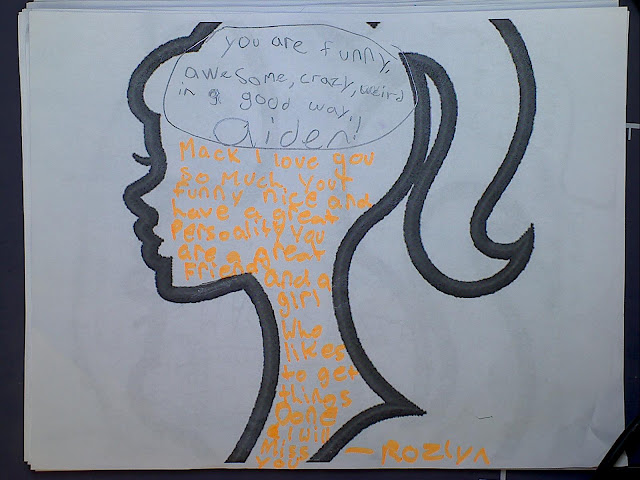 you are funny,
awesome, crazy, weird
in a good way!
aiden!
Mack I love you
so much, your
funny nice and
have a great
Persoality you
are a great
Friend and a
girl
who
likes
to get
things
Done
I will
Miss
you
— Rozlyn